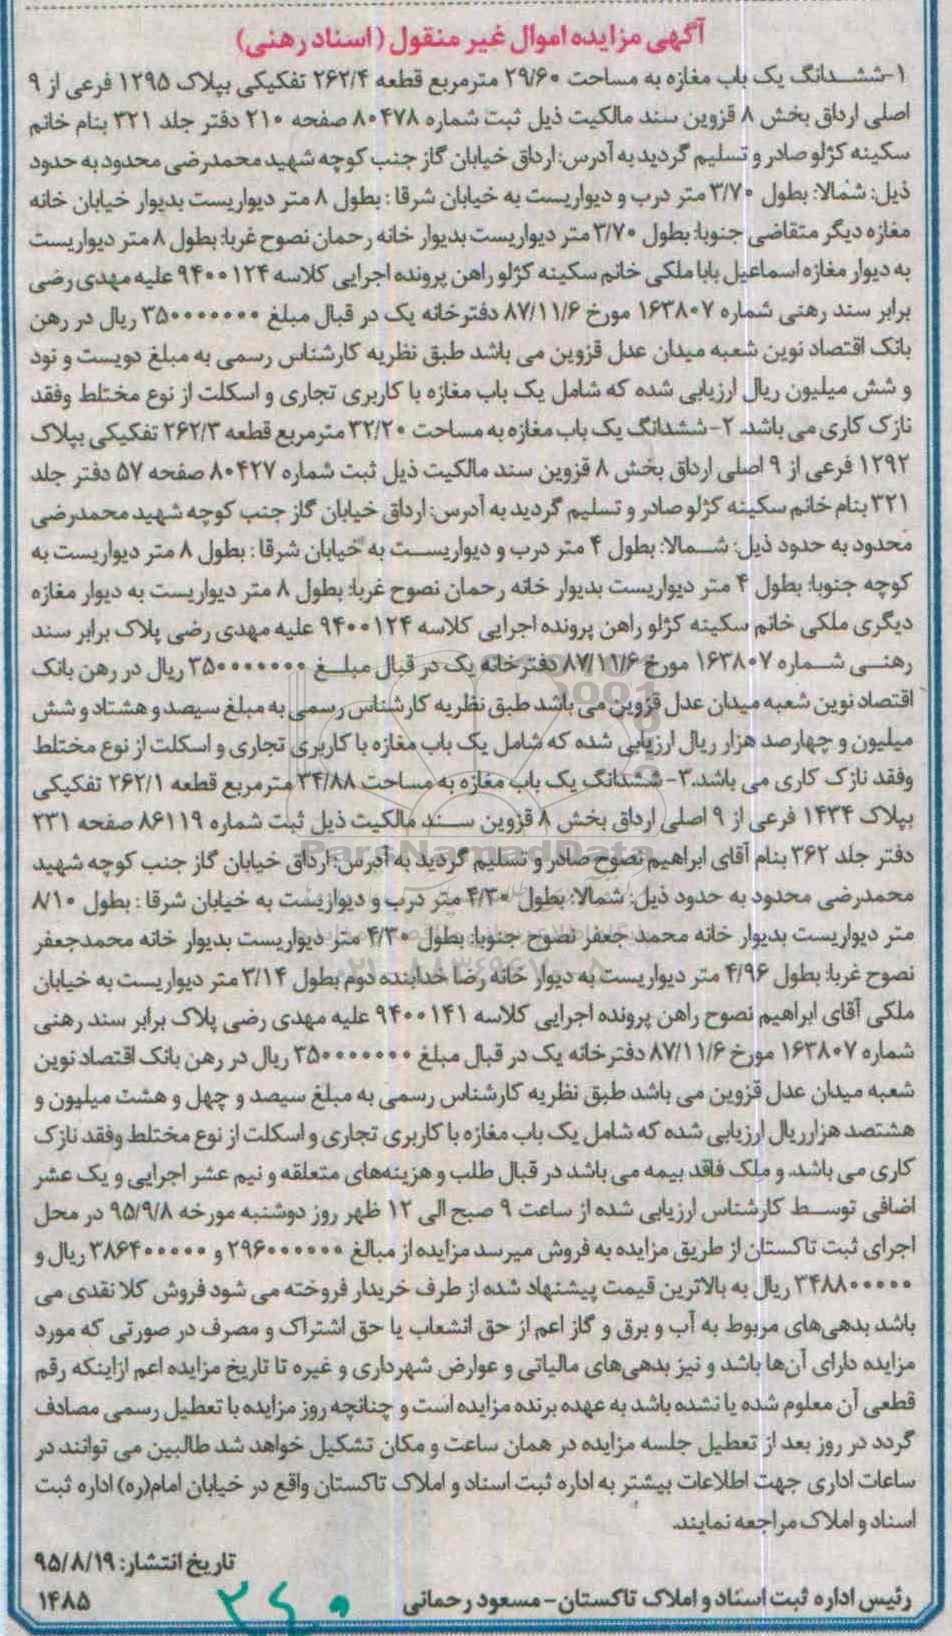 آگهی مزایده اموال غیر منقول (اسناد رهنی)
۱-ششدانگ یک باب مغازه به مساحت ۲۹/۶۰ مترمربع قطعه ۲۶۲/۴ تفکیکی بپلاک ۱۲۹۵ فرعی از ۹
اصلی ارداق بخش ۸ قزوین سند مالکیت ذیل ثبت شماره ۸۰۴۷۸ صفحه ۲۱۰ دفتر جلد ۳۲۱ بنام خانم
سکینه کژلو صادر و تسلیم گردید به آدرس: ارداق خیابان گاز جنب کوچه شهید محمدرضی محدود به حدود
ذیل: شمالا: بطول ۳/۷۰ متر درب و دیواریست به خیابان شرقا : بطول ۸ متر دیواریست بدیوار خیابان خانه
مغازه دیگر متقاضی جنوبا: بطول ۳/۷۰ متر دیواریست بدیوار خانه رحمان نصوح غربا: بطول ۸ متر دیواریست
به دیوار مغازه اسماعیل بابا ملکی خانم سکینه کژلو راهن پرونده اجرایی کلاسه ۹۴۰۰۱۲۴ علیه مهدی رضی
برابر سند رهنی شماره ۱۶۳۸۰۷ مورخ ۸۷/۱۱/۶ دفترخانه یک در قبال مبلغ ۳۵۰۰۰۰۰۰۰۰ ریال در رهن
بانک اقتصاد نوین شعبه میدان عدل قزوین می باشد طبق نظریه کارشناس رسمی به مبلغ دویست و نود
و شش میلیون ریال ارزیابی شده که شامل یک باب مغازه با کاربری تجاری و اسکلت از نوع مختلط وفقد
نازک کاری می باشد. ۲-ششدانگ یک باب مغازه به مساحت ۳۲/۲۰ مترمربع قطعه ۲۶۲/۳ تفکیکی بپلاک
۱۲۹۲ فرعی از ۹ اصلی ارداق بخش ۸ قزوین سند مالکیت ذیل ثبت شماره ۸۰۴۲۷ صفحه ۵۷ دفتر جلد
۳۲۱ بنام خانم سکینه کژلو صادر و تسلیم گردید به آدرس: ارداق خیابان گاز جنب کوچه شهید محمدرضی
محدود به حدود ذیل: شمالا: بطول ۴ متر درب و دیواریست به خیابان شرقا : بطول ۸ متر دیواریست به
کوچه جنوبا: بطول ۴ متر دیواریست بدیوار خانه رحمان نصوح غربا: بطول ۸ متر دیواریست به دیوار مغازه
دیگری ملکی خانم سکینه کژلو راهن پرونده اجرایی کلاسه ۹۴۰۰۱۲۴ علیه مهدی رضی پلاک برابر سند
رهنی شماره ۱۶۳۸۰۷ مورخ ۸۷/۱۱/۶ دفترخانه یک در قبال مبلغ ۳۵۰۰۰۰۰۰۰۰ ریال در رهن بانک
اقتصاد نوین شعبه میدان عدل قزوین می باشد طبق نظریه کارشناس رسمی به مبلغ سیصد و هشتاد و شش
میلیون و چهارصد هزار ریال ارزیابی شده که شامل یک باب مغازه با کاربری تجاری و اسکلت از نوع مختلط
وفقد نازک کاری می باشد. ۳- ششدانگ یک باب مغازه به مساحت ۳۴/۸۸ مترمربع قطعه ۲۶۲/۱ تفکیکی
بپلاک ۱۴۳۴ فرعی از ۹ اصلی ارداق بخش ۸ قزوین سند مالکیت ذیل ثبت شماره ۸۶۱۱۹ صفحه ۲۳۱
دفتر جلد ۳۶۲ بنام آقای ابراهیم نصوح صادر و تسلیم گردید به آدرس: ارداق خیابان گاز جنب کوچه شهید
محمدرضی محدود به حدود ذیل: شمالا: بطول ۴/۳۰ متر درب و دیواریست به خیابان شرقا : بطول ۸/۱۰
متر دیواریست بدیوار خانه محمد جعفر نصوح جنوبا: بطول ۴/۳۰ متر دیواریست بدیوار خانه محمدجعفر
نصوح غربا: بطول ۴/۹۶ متر دیواریست به دیوار خانه رضا خدابنده دوم بطول ۳/۱۴ متر دیواریست به خیابان
ملکی آقای ابراهیم نصوح راهن پرونده اجرایی کلاسه ۹۴۰۰۱۴۱ علیه مهدی رضی پلاک برابر سند رهنی
شماره ۱۶۳۸۰۷ مورخ ۸۷/۱۱/۶ دفترخانه یک در قبال مبلغ ۳۵۰۰۰۰۰۰۰۰ ریال در رهن بانک اقتصاد نوین
شعبه میدان عدل قزوین می باشد طبق نظریه کارشناس رسمی به مبلغ سیصد و چهل و هشت میلیون و
هشتصد هزارریال ارزیابی شده که شامل یک باب مغازه با کاربری تجاری و اسکلت از نوع مختلط وفقد نازک
کاری می باشد. و ملک فاقد بیمه می باشد در قبال طلب و هزینه‌های متعلقه و نیم عشر اجرایی و یک عشر
اضافی توسط کارشناس ارزیابی شده از ساعت ۹ صبح الی ۱۲ ظهر روز دوشنبه مورخه ۹۵/۹/۸ در محل
اجرای ثبت تاکستان از طریق مزایده به فروش میرسد مزایده از مبالغ ۲۹۶۰۰۰۰۰۰ و ۳۸۶۴۰۰۰۰۰ ریال و
۳۴۸۸۰۰۰۰۰ ریال به بالاترین قیمت پیشنهاد شده از طرف خریدار فروخته می شود فروش کلا نقدی می
باشد بدهی‌های مربوط به آب و برق و گاز اعم از حق انشعاب یا حق اشتراک و مصرف در صورتی که مورد
مزایده دارای آن‌ها باشد و نیز بدهی‌های مالیاتی و عوارض شهرداری و غیره تا تاریخ مزایده اعم ازاینکه رقم
قطعی آن معلوم شده یا نشده باشد به عهده برنده مزایده است و چنانچه روز مزایده با تعطیل رسمی مصادف
گردد در روز بعد از تعطیل جلسه مزایده در همان ساعت و مکان تشکیل خواهد شد طالبین می توانند در
ساعات اداری جهت اطلاعات بیشتر به اداره ثبت اسناد و املاک تاکستان واقع در خیابان امام(ره) اداره ثبت
اسناد و املاک مراجعه نمایند.
تاریخ انتشار: ۹۵/۸/۱۹
رئیس اداره ثبت اسناد و املاک تاکستان - مسعود رحمانی
۱۴۸۵
ParsNamadData